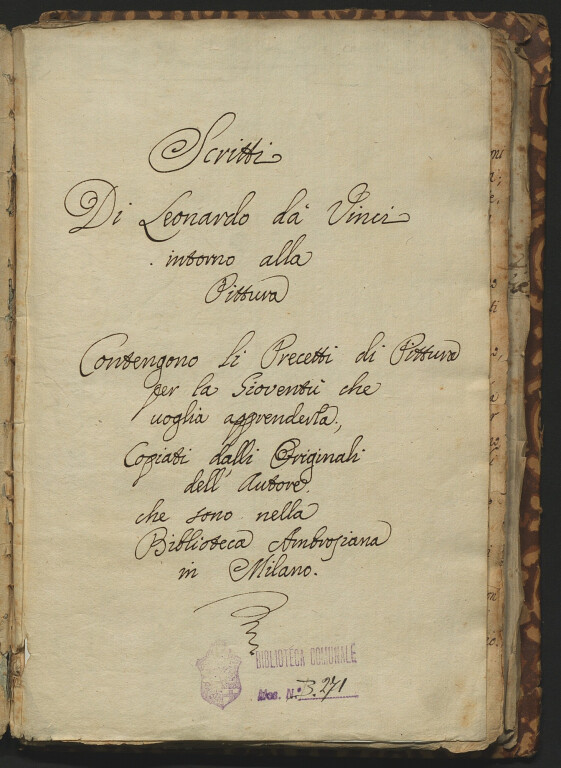 Scritti
Di Leonardo da Vinci
intorno alla
Pittura
Contengono li Precetti di Pittura
per la Gioventù che
uoglia apprenderla,
Copiati dalli Originali
dell'Autore
che sono nella
Biblioteca Ambrosiana
in Milano.
BIBLIOTECA COMUNALE
N. B. 271